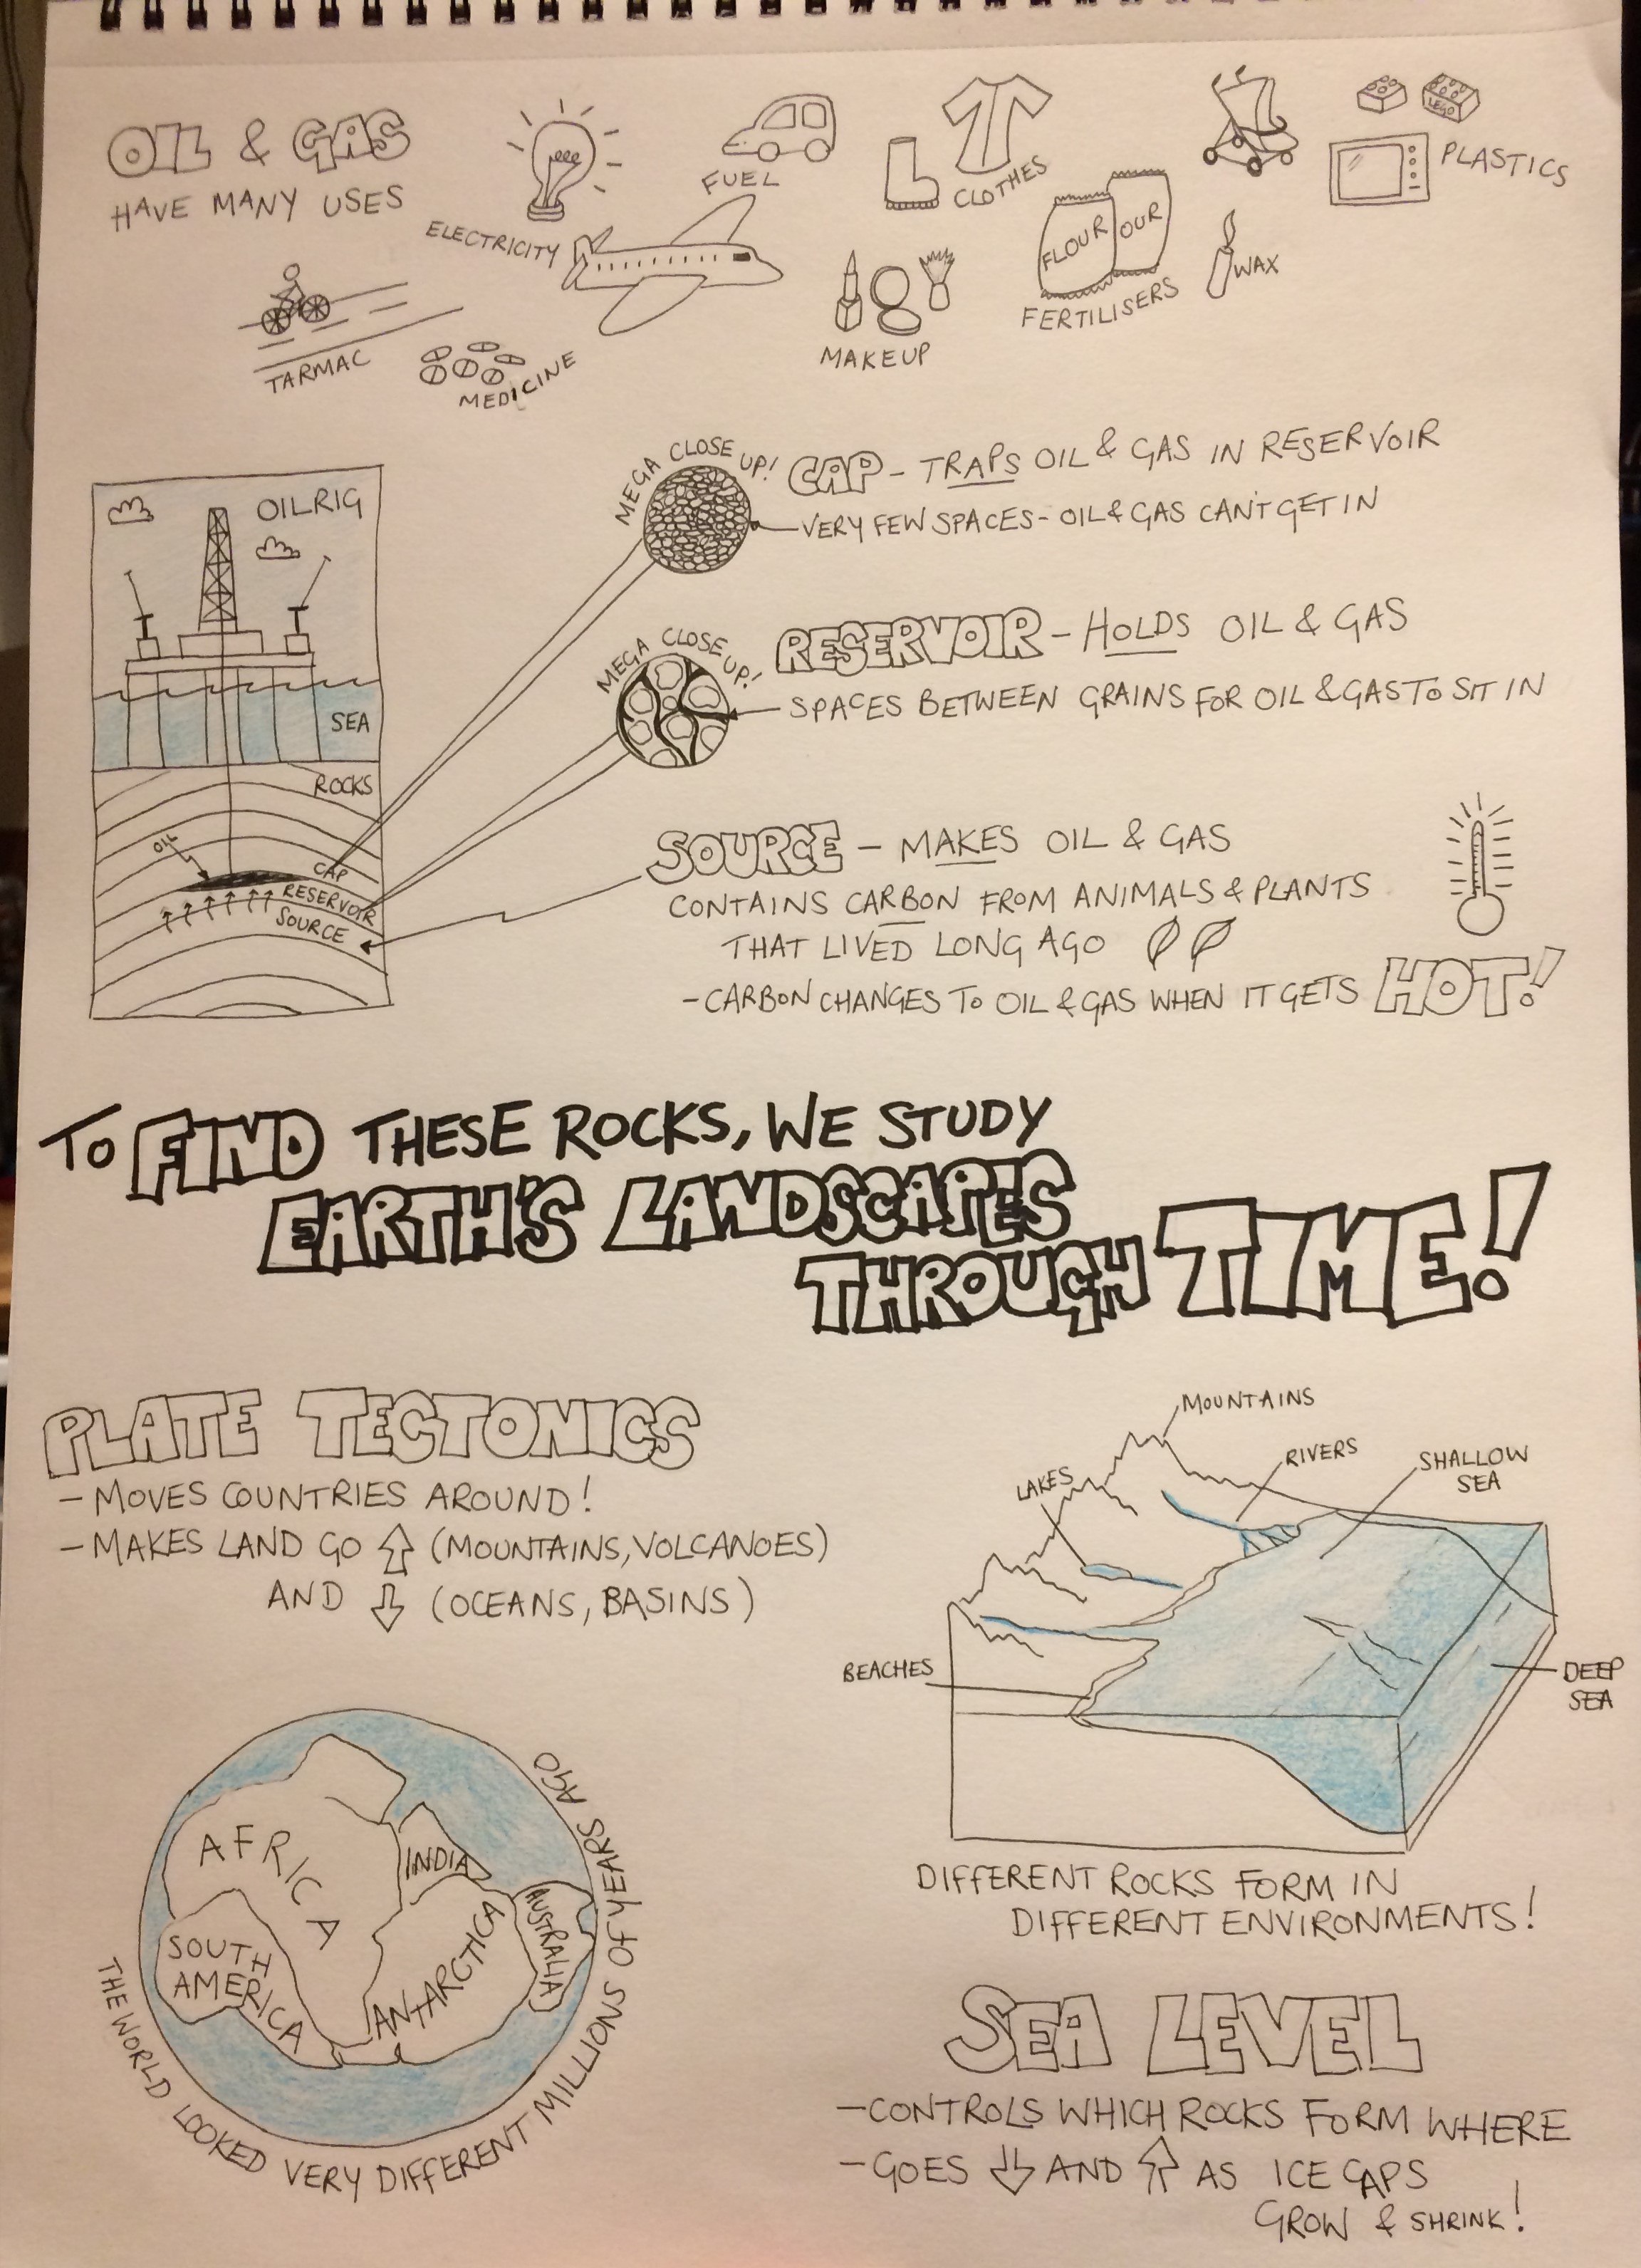 OIL & GAS
HAVE MANY USES
ELECTRICITY
FUEL
CLOTHES
LEGO
PLASTICS
FLOUR
OUR
FERTILISERS
WAX
MAKEUP
TARMAC
MEDICINE
OILRIG
SEA
ROCKS
OIL
CAP
RESERVOIR
SOURCE
MEGA CLOSE UP!
CAP - TRAPS OIL & GAS IN RESERVOIR
VERY FEW SPACES - OIL & GAS CAN'T GET IN
MEGA CLOSE UP!
RESERVOIR - HOLDS OIL & GAS
SPACES BETWEEN GRAINS FOR OIL & GAS TO SIT IN
SOURCE - MAKES OIL & GAS
CONTAINS CARBON FROM ANIMALS & PLANTS
THAT LIVED LONG AGO
- CARBON CHANGES TO OIL & GAS WHEN IT GETS HOT!
TO FIND THESE ROCKS, WE STUDY
EARTH'S LANDSCAPES
THROUGH TIME!
PLATE TECTONICS
- MOVES COUNTRIES AROUND!
- MAKES LAND GO ⇧ (MOUNTAINS, VOLCANOES)
AND ⇩ (OCEANS, BASINS)
AFRICA
INDIA
AUSTRALIA
ANTARCTICA
SOUTH
AMERICA
THE WORLD LOOKED VERY DIFFERENT MILLIONS OF YEARS AGO
MOUNTAINS
RIVERS
SHALLOW
SEA
LAKES
BEACHES
DEEP
SEA
DIFFERENT ROCKS FORM IN
DIFFERENT ENVIRONMENTS!
SEA LEVEL
- CONTROLS WHICH ROCKS FORM WHERE
- GOES ⇩ AND ⇧ AS ICE CAPS
GROW & SHRINK!